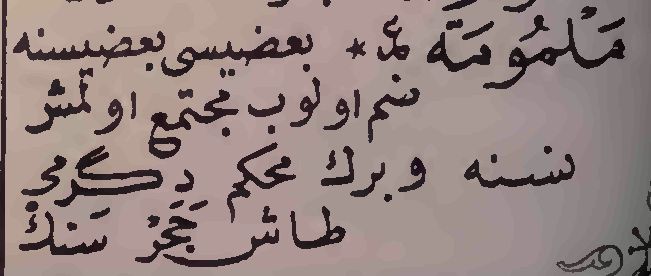 مَلْمُومَةٌ ع * بعضیسی بعضیسنه
ضم اولوب مجتمع اولمش
نسنه وبرك محكم دگرمی
طاش حَجَرْ سَنكْ